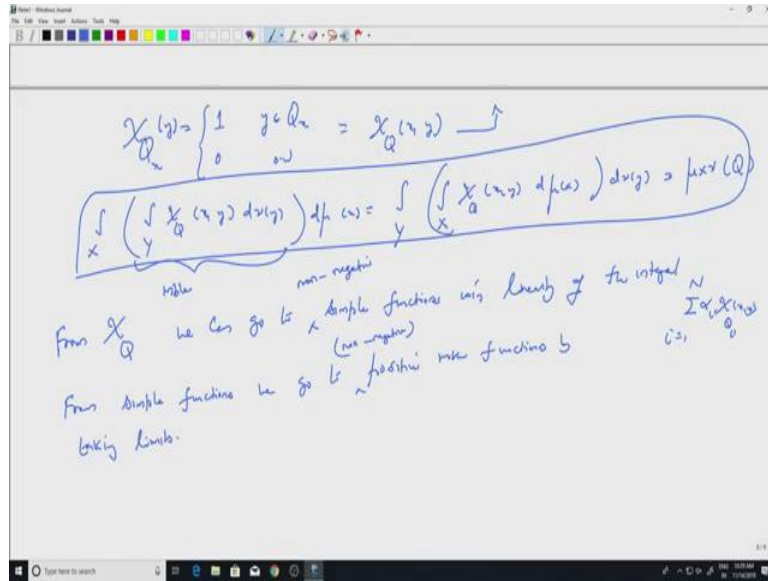 Note1 - Windows Journal
File Edit View Insert Actions Tools Help
χ_{Q_x}(y) = { 1 y ∈ Q_x = χ_Q(x, y)
0 o.w
∫_X ( ∫_Y χ_Q(x, y) dν(y) ) dμ(x) = ∫_Y ( ∫_X χ_Q(x, y) dμ(x) ) dν(y) = μ×ν(Q)
mble
non-negative
From χ_Q we can go to ^ simple functions using linearity of the integral
Σ_{i=1}^N α_i χ_{Q_i}(x, y)
(non-negative)
From simple functions we go to ^ positive mble functions by
taking limits.
Type here to search